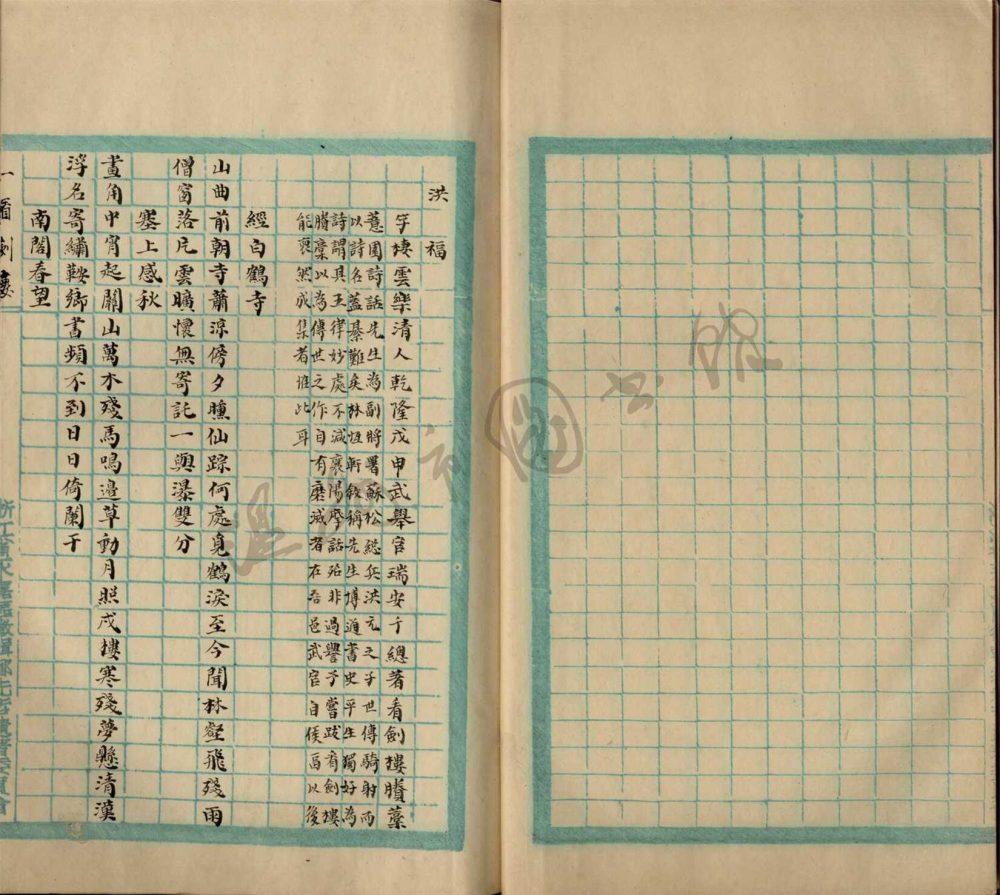 洪福
字棲雲樂清人乾隆戊申武舉官瑞安千總著看劍樓賸藁
薏園詩話先生為副將署蘇松總兵洪元之子世傳騎射而
以詩名蓋綦難矣林恆軒敘稱先生博通書史平生獨好為
詩謂其五律妙處不減襄陽摩詰殆非過譽予嘗跋看劍樓
賸藁以為傳世之作自有磨滅者在吾邑武官自侯畐以後
能裒然成集者惟此耳
經白鶴寺
山曲前朝寺蕭涼傍夕曛仙踪何處覓鶴淚至今聞林壑飛殘雨
僧窗落片雲曠懷無寄託一與瀑雙分
塞上感秋
畫角中宵起關山萬木殘馬鳴邊草動月照戍樓寒殘夢懸清漢
浮名寄繡鞍鄉書頻不到日日倚闌干
南閣春望